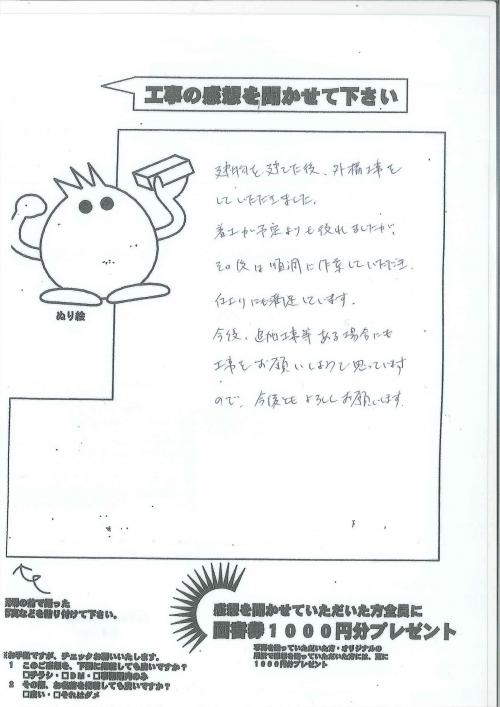 工事の感想を聞かせて下さい
建物を建てた後、外構工事を
していただきました。
着工が予定よりも後れましたが、
その後は順調に作業していただき、
仕上りにも満足しています。
今後、追加工事等ある場合にも
工事をお願いしようと思っています
ので、今後ともよろしくお願いします。
ぬり絵
の前で撮った
などを貼り付けて下さい。
感想を聞かせていただいた方全員に
図書券1000円分プレゼント
写真を撮っていただいた方・オリジナルの
1000円分プレゼント
お手数ですが、チェックお願いいたします。
1 このご感想を、下記に掲載しても良いですか?
□チラシ・□DM・□事務所内のみ
2 その際、お名前を掲載しても良いですか?
□良い・□それはダメ